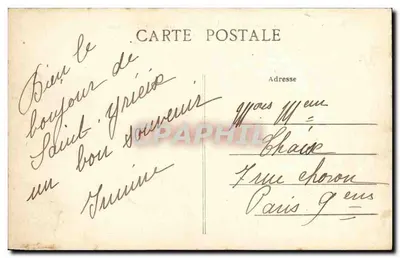 CARTE POSTALE
Bien le
bonjour de
Saint-Yrieix
un bon souvenir
Adresse
Thaix
7 rue choron
Paris 9ems
PAPHIL